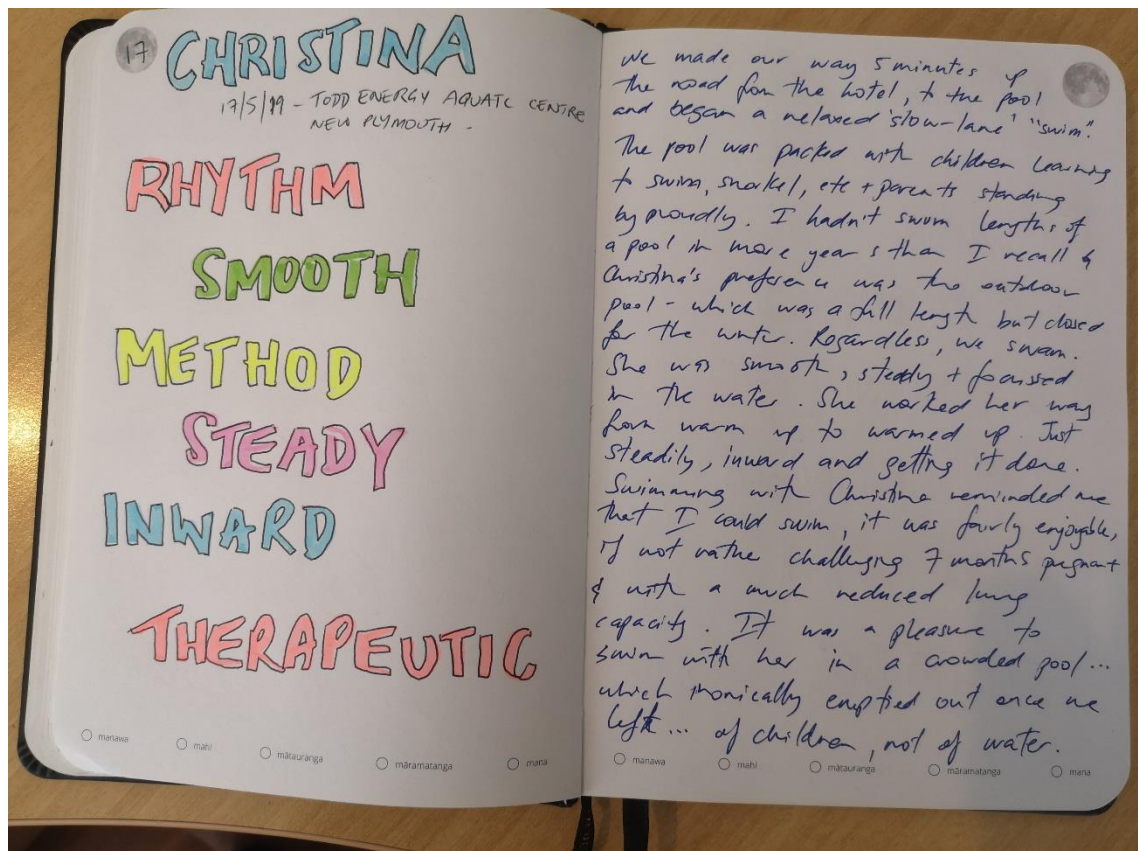 17
CHRISTINA
17/5/19 - TODD ENERGY AQUATC CENTRE
NEW PLYMOUTH -
RHYTHM
SMOOTH
METHOD
STEADY
INWARD
THERAPEUTIC
manawa mahi mātauranga māramatanga mana
We made our way 5 minutes up
the road from the hotel, to the pool
and began a relaxed 'slow-lane' "swim".
The pool was packed with children learning
to swim, snorkel, etc + parents standing
by proudly. I hadn't swum lengths of
a pool in more years than I recall &
Christina's preference was the outdoor
pool - which was a full length but closed
for the winter. Regardless, we swam.
She was smooth, steady + focussed
in the water. She worked her way
from warm up to warmed up. Just
steadily, inward and getting it done.
Swimming with Christina reminded me
that I could swim, it was fairly enjoyable,
if not rathe challenging 7 months pregnant
& with a much reduced lung
capacity. It was a pleasure to
swim with her in a crowded pool...
which ironically emptied out once we
left... of children, not of water.
manawa mahi mātauranga māramatanga mana